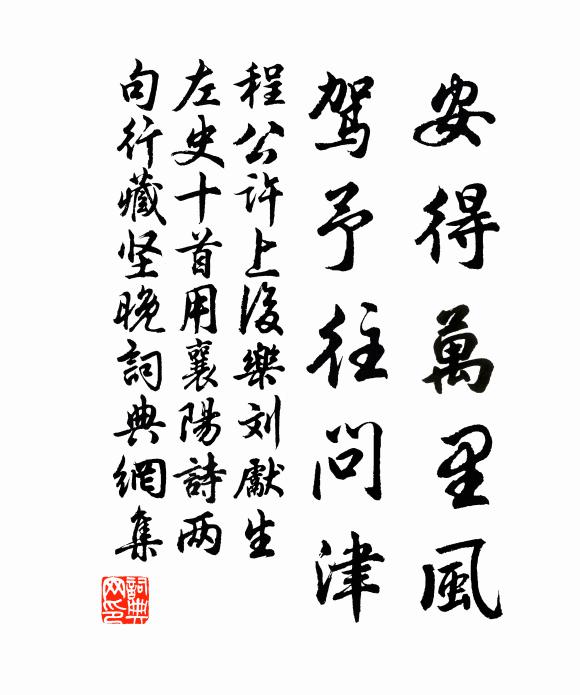 安得萬里風
駕予往問津
程公許上後樂刘獻生
左史十首用襄陽詩两
句行藏坚晚詞典網集
詞典網印